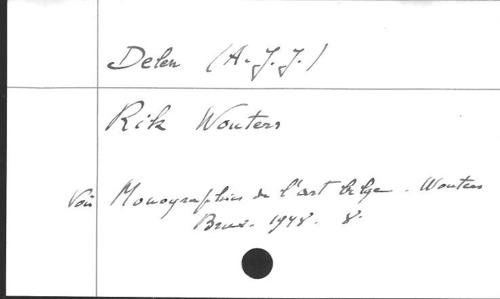 Delen (A. J. J.)
Rik Wouters
Voir Monographies de l'art belge. Wouters
Brux. 1948. 8.